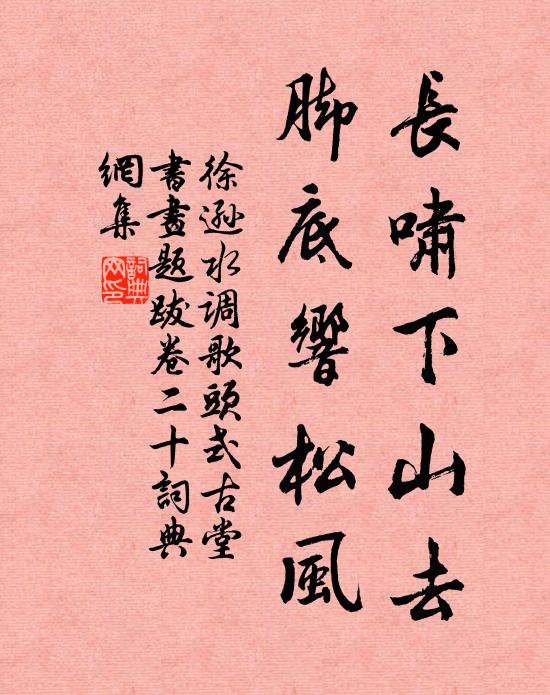 長嘯下山去
脚底響松風
徐逊水调歌頭式古堂
書畫题跋卷二十詞典
網集
詞典网印